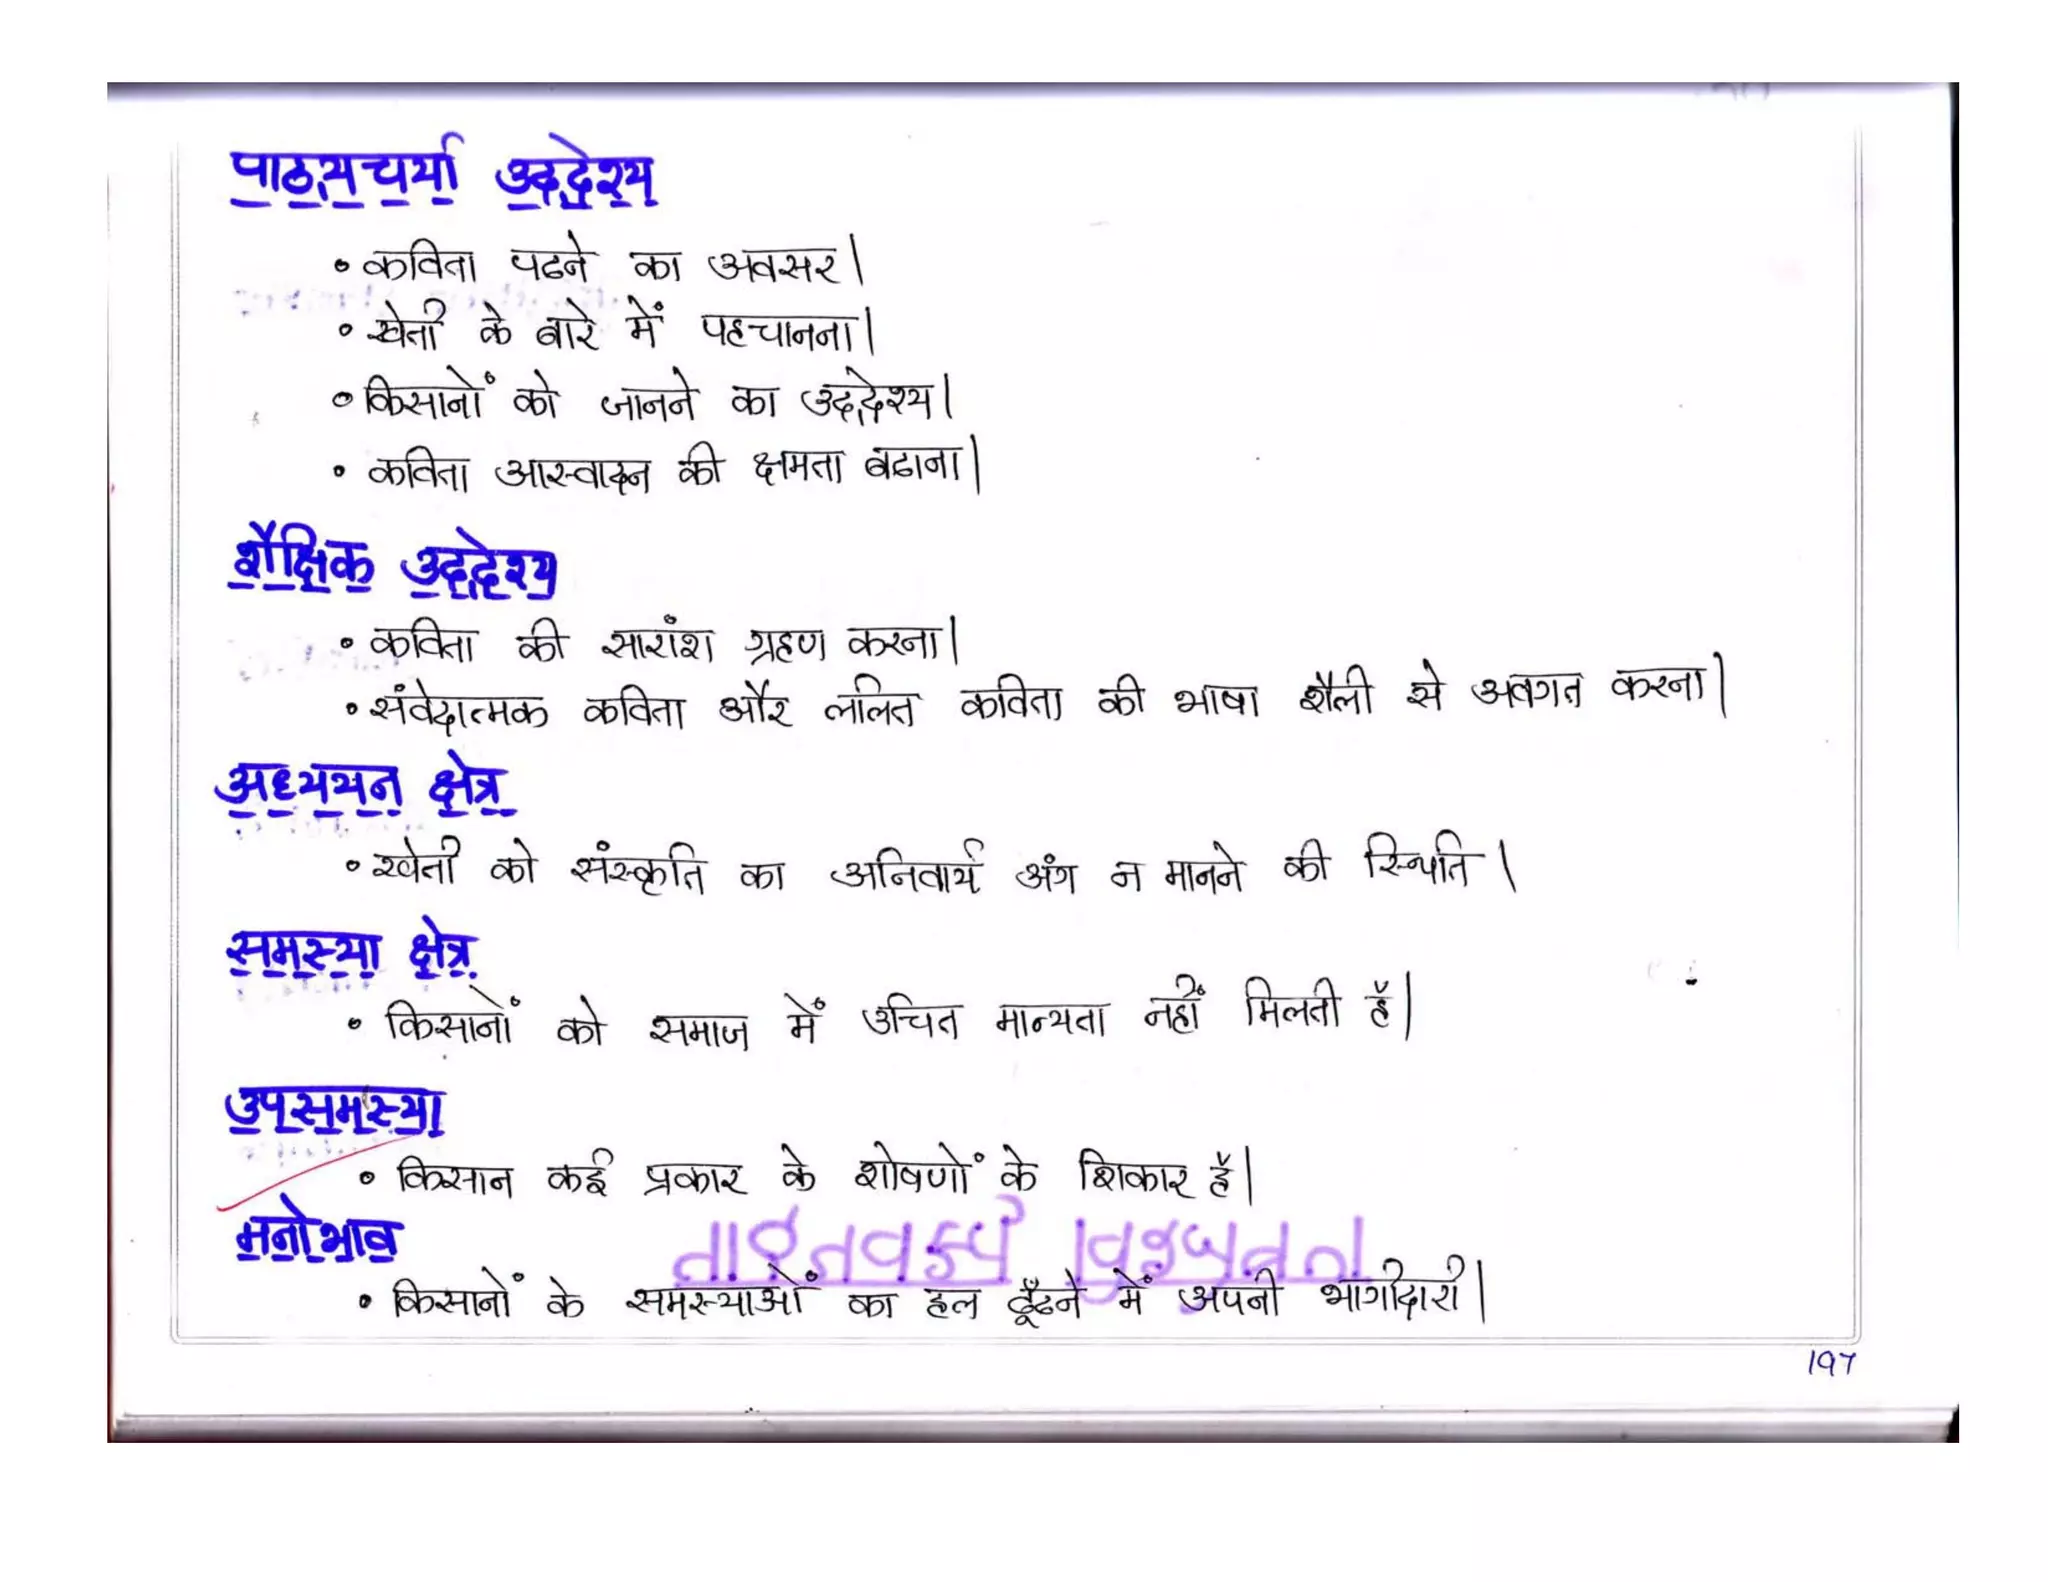 पाठ्यचर्या उद्देश्य
• कविता पढने का अवसर।
• खेती के बारे में पहचानना।
• किसानों को जानने का उद्देश्य।
• कविता आस्वादन की क्षमता बढाना।
शैक्षिक उद्देश्य
• कविता की सारांश ग्रहण करना।
• संवेदात्मक कविता और ललित कविता की भाषा शैली से अवगत करना।
अध्ययन क्षेत्र
• खेती को संस्कृति का अनिवार्य अंग न मानने की स्थिति।
समस्या क्षेत्र
• किसानों को समाज में उचित मान्यता नहीं मिलती हैं।
उपसमस्या
• किसान कई प्रकार के शोषणों के शिकार हैं।
मनोभाव
• किसानों के समस्याओं का हल ढूँढने में अपनी भागीदारी।
197